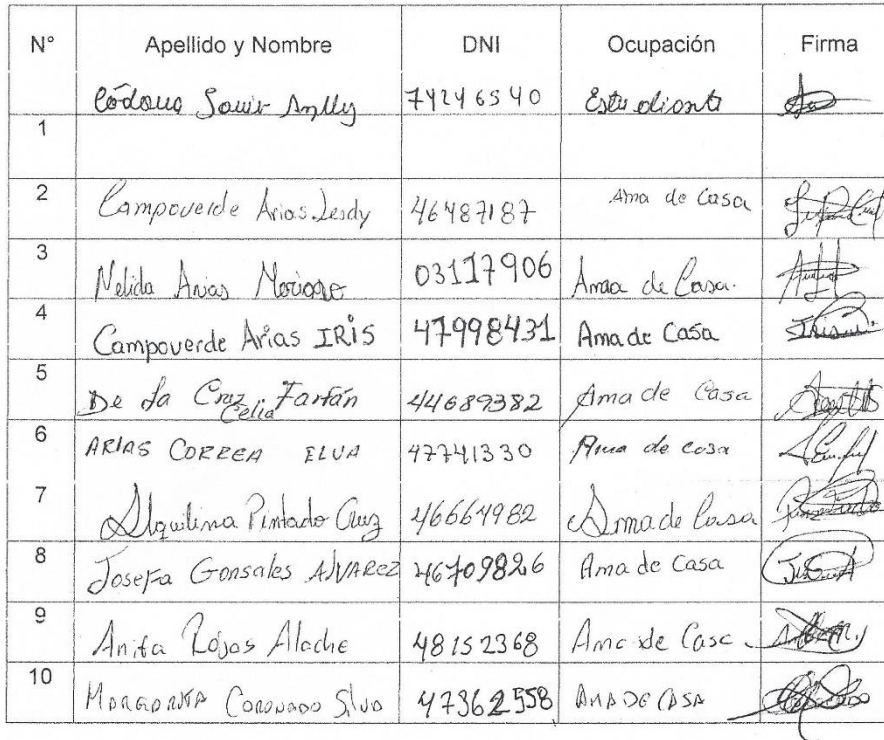 N° Apellido y Nombre DNI Ocupación Firma
1 74246540 Estudiante
2 Campoverde Arias Lesdy 46487187 Ama de Casa
3 Nelida Arias 03117906 Amaa de Casa.
4 Campoverde Arias IRIS 47998431 Ama de Casa
5 De la Cruz Farfán Celia 44689382 Ama de Casa
6 ARIAS CORREA ELVA 47741330 Ama de casa
7 Alquilina Pintado Cruz 46664982 Ama de Casa
8 Josefa Gonsales AlVAREZ 46709826 Ama de Casa
9 Anita Rojas Alache 48152368 Ama de Casa
10 MARGARITA CORONADO Silva 47362558 AMA DE CASA